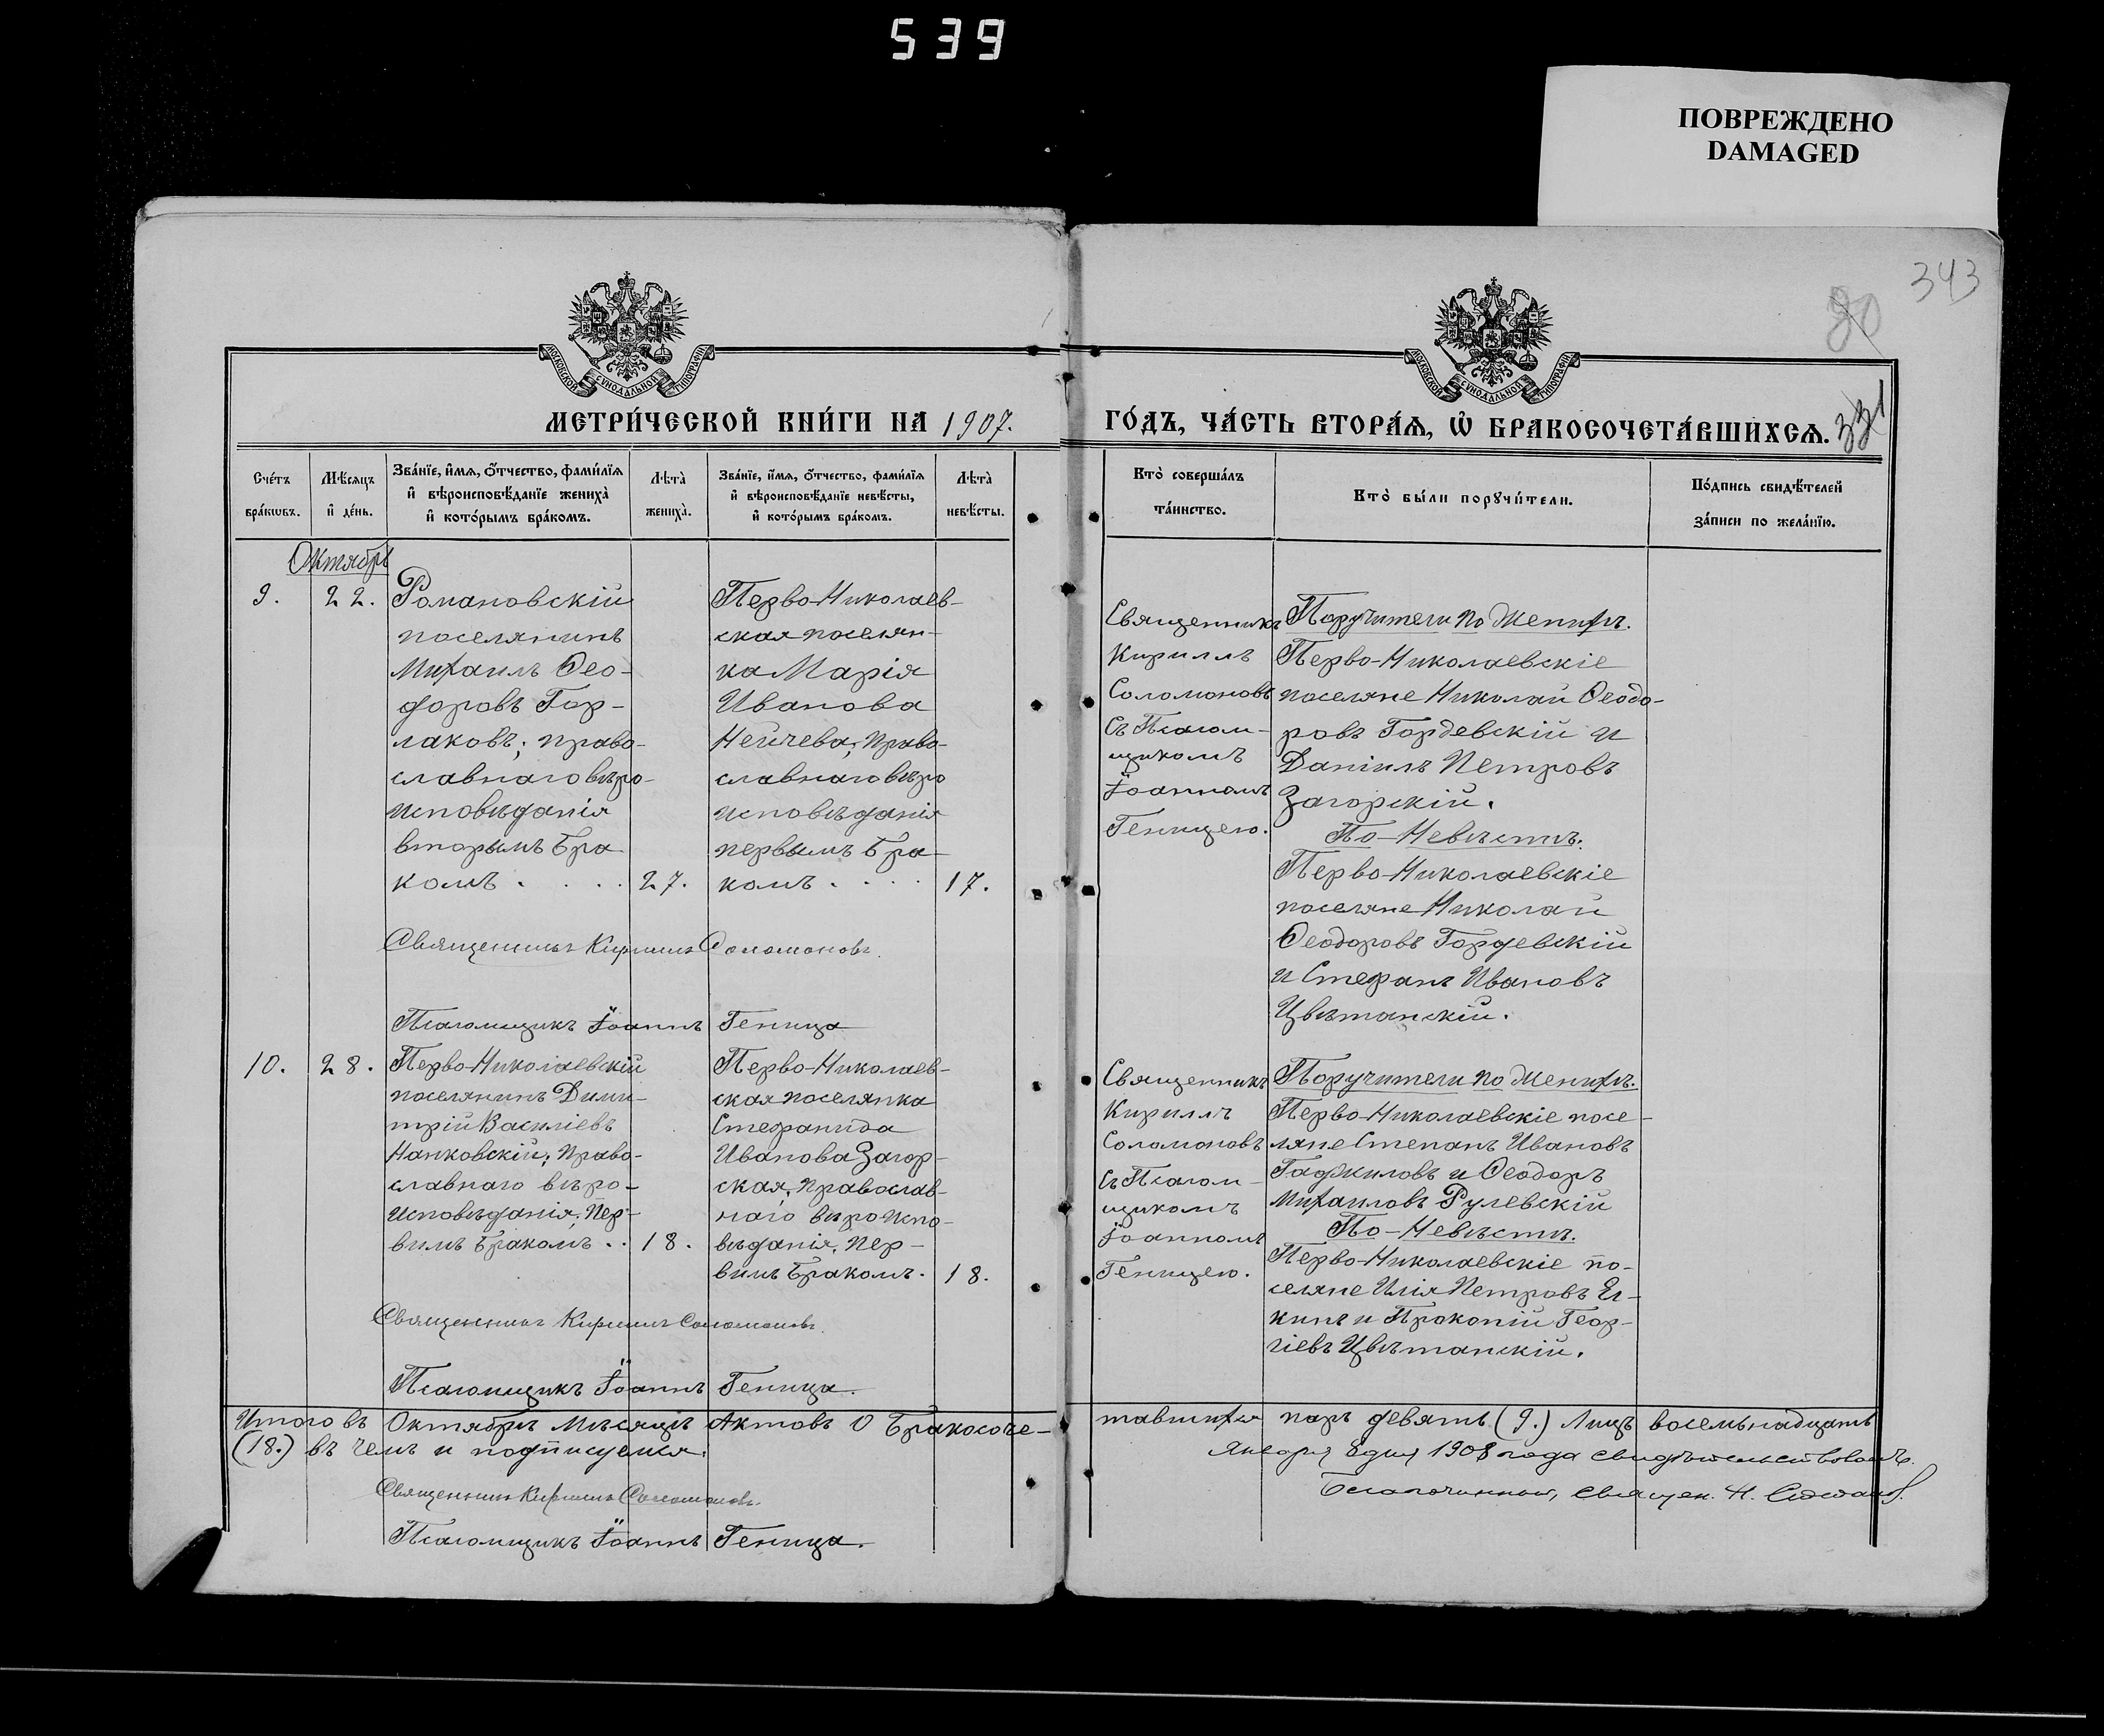 539
ПОВРЕЖДЕНО
DAMAGED
343
80
331
МОСКОВСКОЙ СѴНОДАЛЬНОЙ ТИПОГРАФІИ
МОСКОВСКОЙ СѴНОДАЛЬНОЙ ТИПОГРАФІИ
МЕТРИ́ЧЕСКОЙ КНИ́ГИ НА 1907.
ГО́ДЪ, ЧА́СТЬ ВТОРА́Ѧ, Ѡ҆ БРАКОСОЧЕТА́ВШИХСѦ.
Сче́тъ бра́кωвъ.
Мѣ́сяцъ и҆ де́нь.
Зва́нїе, и҆́мѧ, ѻ҆́тчество, фами́лїѧ
и҆ вѣроисповѣ́данїе жениха̀
и҆ кото́рымъ бра́комъ.
Лѣ́та̀ жениха̀.
Зва́нїе, и҆́мѧ, ѻ҆́тчество, фами́лїѧ
и҆ вѣроисповѣ́данїе невѣ́сты,
и҆ кото́рымъ бра́комъ.
Лѣ́та̀ невѣ́сты.
Кто̀ соверша́лъ
та́инство.
Кто̀ бы́ли порꙋчи́тели.
По́дпись свидѣ́телей
за́писи по жела́нїю.
Октябрь
9.
22.
Романовскій
поселянинъ
Михаилъ Ѳео-
доровъ Гор-
лаковъ; право-
славнаго вѣро-
исповѣданія
вторымъ бра
комъ . . . .
27.
Перво-Николаев-
ская поселян-
ка Марія
Иванова
Нейчева; право-
славнаго вѣро
исповѣданія
первымъ бра-
комъ . . . .
17.
Священникъ Кириллъ Соломоновъ.
Псаломщикъ Іоаннъ Геница
Священникъ
Кириллъ
Соломоновъ
съ Псалом-
щикомъ
Іоанномъ
Геницею.
Поручители по Женихѣ.
Перво-Николаевскіе
поселяне Николай Ѳеодо-
ровъ Гордевскій и
Даніилъ Петровъ
Загорскій.
По-Невѣстѣ.
Перво-Николаевскіе
поселяне Николай
Ѳеодоровъ Гордевскій
и Стефанъ Ивановъ
Цвѣтанскій.
10.
28.
Перво-Николаевскій
поселянинъ Дими-
трій Василіевъ
Нанковскій; право-
славнаго вѣро-
исповѣданія; пер-
вымъ бракомъ . .
18.
Перво-Николаев-
ская поселянка
Стефанида
Иванова Загор-
ская, православ-
наго вѣроиспо-
вѣданія, пер-
вымъ бракомъ.
18.
Священникъ Кириллъ Соломоновъ.
Псаломщикъ Іоаннъ Геница.
Священникъ
Кириллъ
Соломоновъ
съ Псалом-
щикомъ
Іоанномъ
Геницею.
Поручители по Женихѣ.
Перво-Николаевскіе посе-
ляне Степанъ Ивановъ
Гаджиловъ и Ѳеодоръ
Михаиловъ Рулевскій
По-Невѣстѣ.
Перво-Николаевскіе по-
селяне Илія Петровъ Ел-
кинъ и Прокопій Геор-
гіевъ Цвѣтанскій.
Итого въ Октябрѣ мѣсяцѣ актовъ о бракосоче-
тавшихся паръ девять (9.) лицъ восемьнадцать
(18.) въ чемъ и подписуемся.
Священникъ Кириллъ Соломоновъ.
Псаломщикъ Іоаннъ Геница.
Января 8 дня 1908 года свидѣтельствовалъ.
Благочинный, священ. Н.